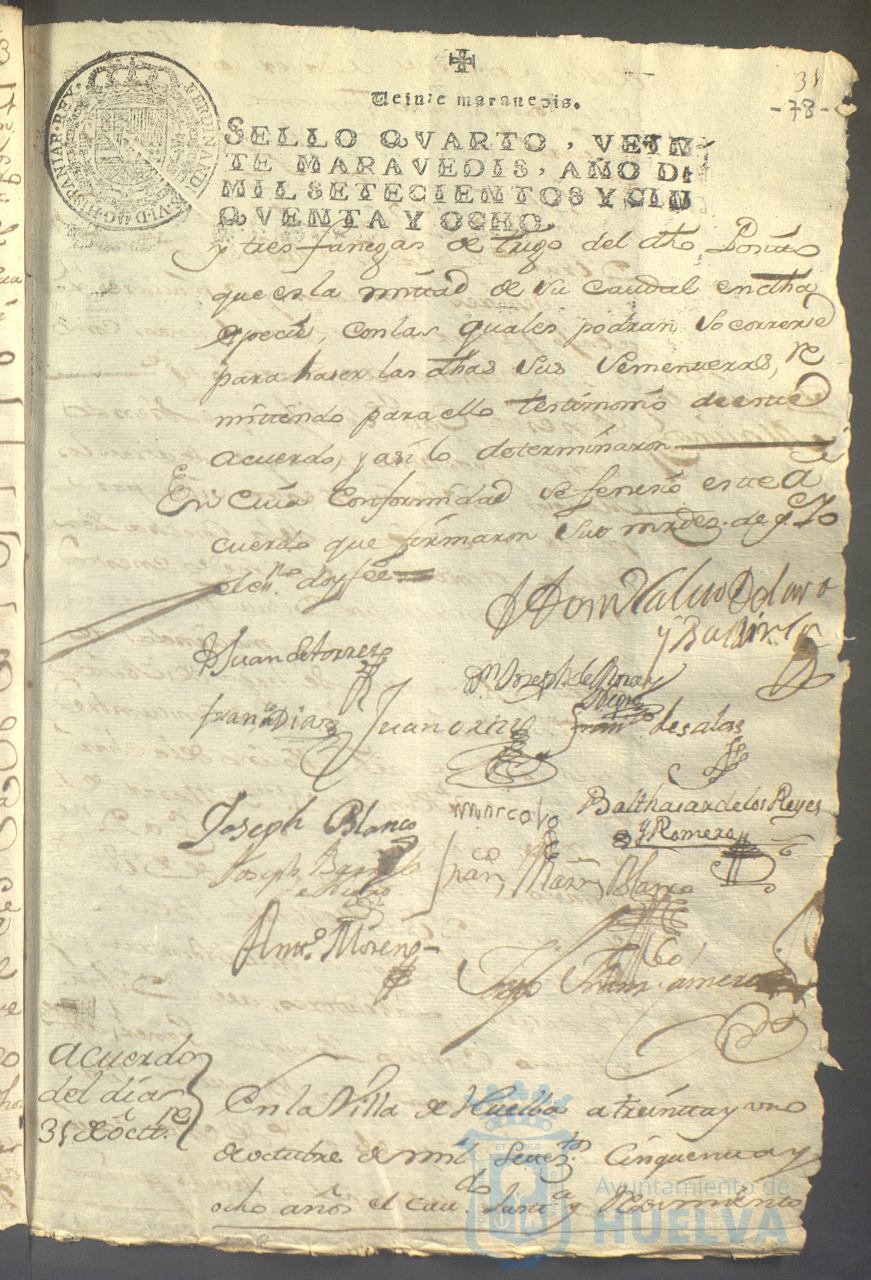 31
-78-
Veinte maravedis.
SELLO QVARTO, VEIN
TE MARAVEDIS, AÑO DE
MIL SETECIENTOS Y CIN
QVENTA Y OCHO.
FERDINANDUS. VI. D. G. HISPANIAR. REX.
y tres fanegas de trigo del dho Posito
que es la mitad de su caudal en dha
especie, con las quales podran socorrerse
para haser las dhas sus sementeras, re
mitiendo para ello testimonio de este
acuerdo, y asi lo determinaron
En cuia conformidad se fenesio este A
cuerdo que firmaron sus mrdes. de q. Yo
el esno. doy fee
Juan de torres
Dn Joseph de
Franco Diaz
Juan
Franco de salas
Joseph Blanco
Marcolo
Balthasar de los Reyes
y Romero
Joseph
Fran Marn Blanco
Anto. Moreno
Acuerdo
del dia
31 de octre.
En la Villa de Huelba a treinta y uno
de octubre de mil setetos. Cinquenta y
ocho años el cavdo Justa y Reximiento
Ayuntamiento de
HUELVA